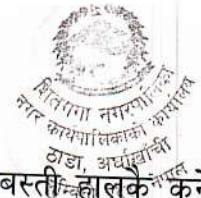 शितगंगा नगरपालिका
नगर कार्यपालिकाको कार्यालय
ठाडा, अर्घाखाँची
नेपाल
बस्ती हालकै